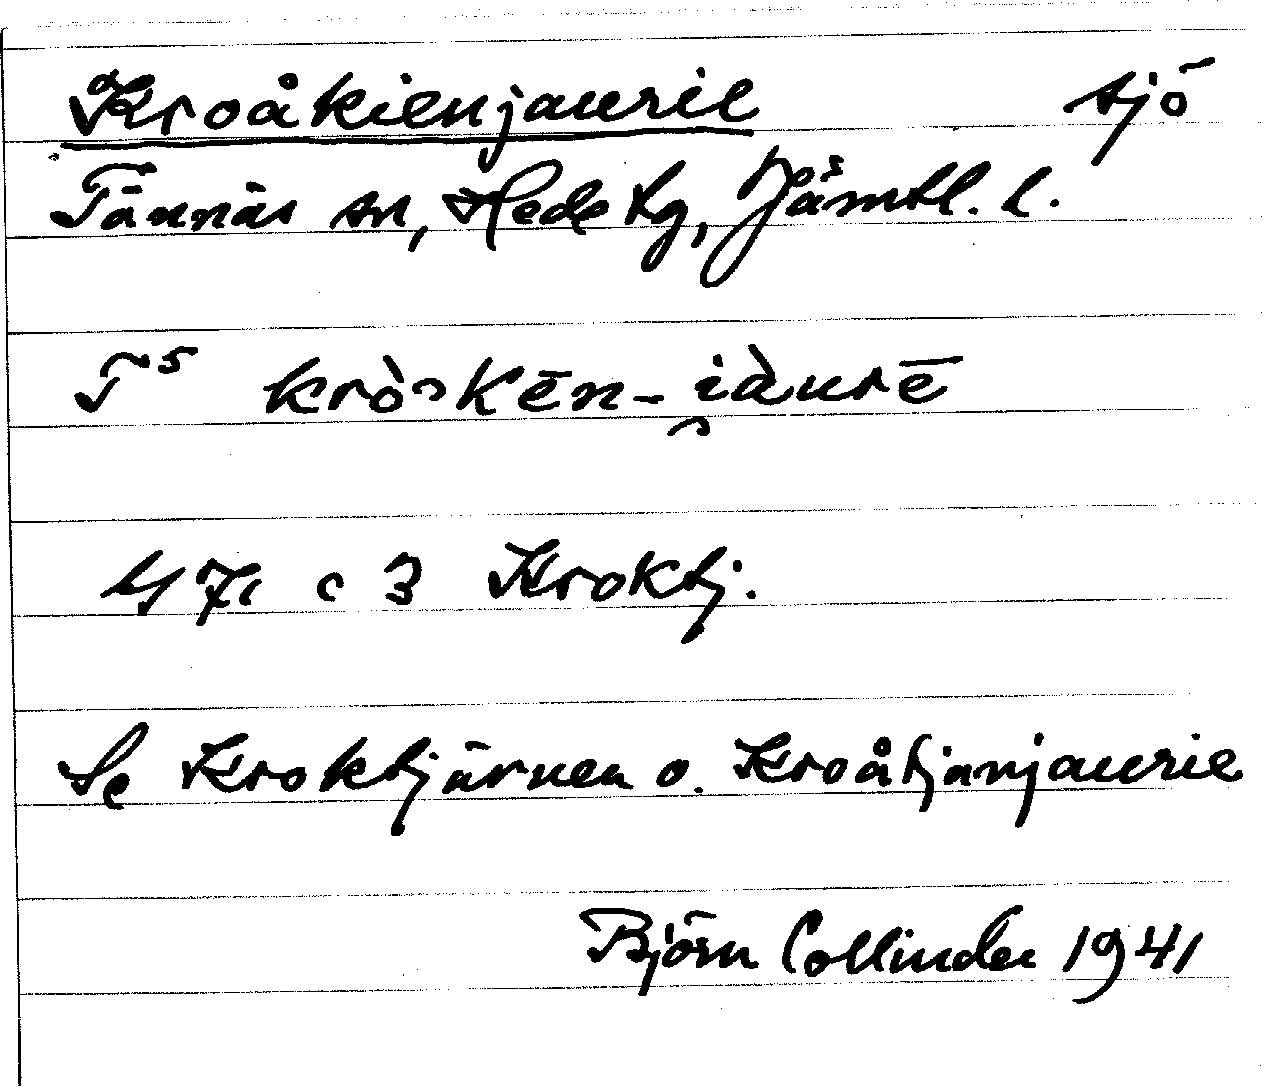 Kroåkienjaurie sjö
Tännäs sn, Hede tg, Jämtl. l.
T⁵ krò̭ɔkēn-i̯àurē
47 c 3 Kroktj.
Se Kroktjärnen o. Kroåtjanjaurie
Björn Collinder 1941